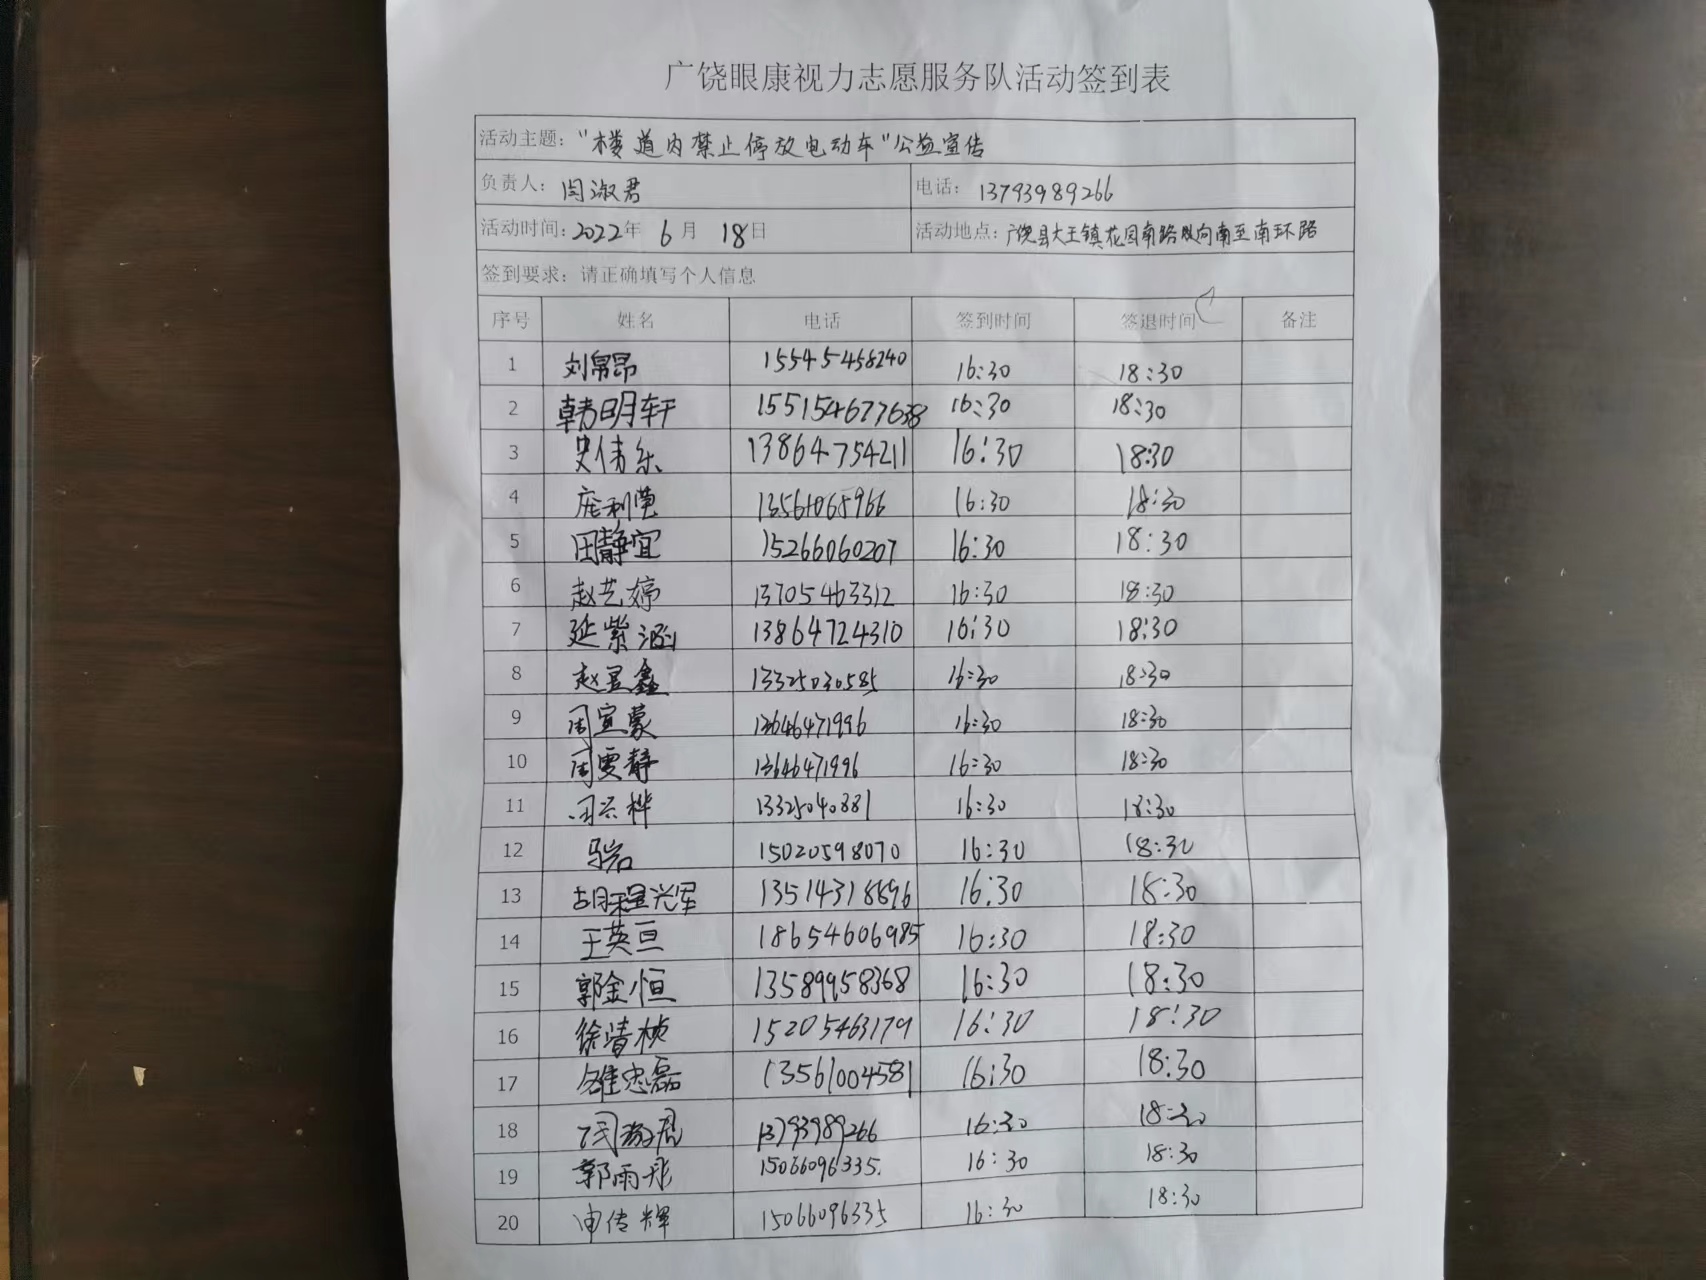 广饶眼康视力志愿服务队活动签到表
活动主题："楼道内禁止停放电动车"公益宣传
负责人：闫淑君 电话：13793989266
活动时间：2022年 6月 18日 活动地点：广饶县大王镇花园南路双向南至南环路
签到要求：请正确填写个人信息
序号 姓名 电话 签到时间 签退时间 备注
1 刘帛昂 15545458240 16:30 18:30
2 韩明轩 155154677638 16:30 18:30
3 史倩乐 13864754211 16:30 18:30
4 庞利莹 13561065966 16:30 18:30
5 田静宜 15266060207 16:30 18:30
6 赵艺婷 13705463312 16:30 18:30
7 延紫涵 13864724310 16:30 18:30
8 赵昱鑫 13325030585 16:30 18:30
9 周宣蒙 13646471996 16:30 18:30
10 周雯静 13646471996 16:30 18:30
11 周兴桦 13325040881 16:30 18:30
12 马岩 15020598070 16:30 18:30
13 胡程兴军 13514318696 16:30 18:30
14 王英亘 18654606985 16:30 18:30
15 郭金恒 13589958368 16:30 18:30
16 徐清桢 15205463179 16:30 18:30
17 雒忠磊 13561004581 16:30 18:30
18 闫淑君 13793989266 16:30 18:30
19 郭雨彤 15066096335. 16:30 18:30
20 申传辉 15066096335 16:30 18:30